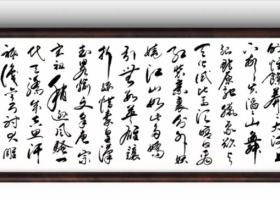 顿失滔滔山舞
银蛇原驰蜡象欲与
天公试比高须晴日看
红装素裹分外妖
娆江山如此多娇
引无数英雄竞
折腰惜秦皇汉
武略输文采唐宗
宋祖稍逊风骚一
代天骄成吉思汗
只识弯弓射大雕